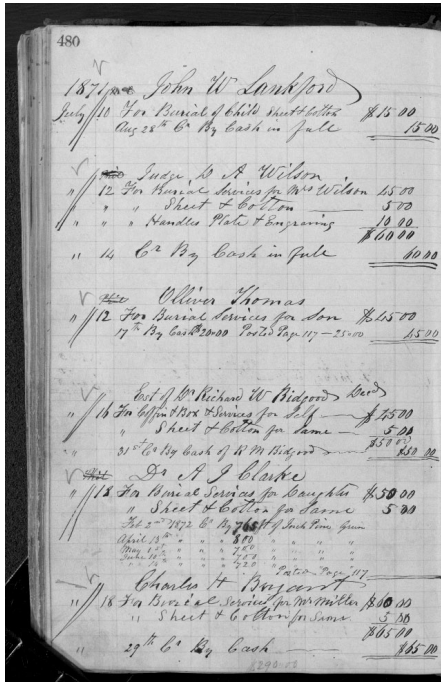 480
1871 John W Lankford
July 10 For Burial of Child Sheet & Cotton $15 00
Aug 28th Cr By Cash in full 15 00
Judge D A Wilson
" 12 For Burial Services for Mrs Wilson 45 00
" " Sheet & Cotton 5 00
" " Handles Plate & Engraving 10 00
$60 00
" 14 Cr By Cash in full 60 00
Olliver Thomas
" 12 For Burial Services for Son $45 00
17th By Cash $20.00 Posted Page 117 - 25.00 45 00
Est of Dr Richard W Bidgood Decd
" 16 For Coffin & Box & Services for Self $45 00
" Sheet & Cotton for Same 5 00
$50 00
31st Cr By Cash of R M Bidgood $50 00
Dr A J Clarke
" 18 For Burial Services for Daughter $50 00
" Sheet & Cotton for Same 5 00
Feb 2nd 1872 Cr By 765 ft of Inch Pine Green
April 13th " " 800 " " " "
May " " 750 " " " "
June " " 750 " " " "
" " " 720 " " "
Posted Page 117
Charles H Bryant
" 18 For Burial Services for Mr Miller $60 00
" Sheet & Cotton for Same 5 00
$65 00
29th Cr By Cash $65 00
$290.00